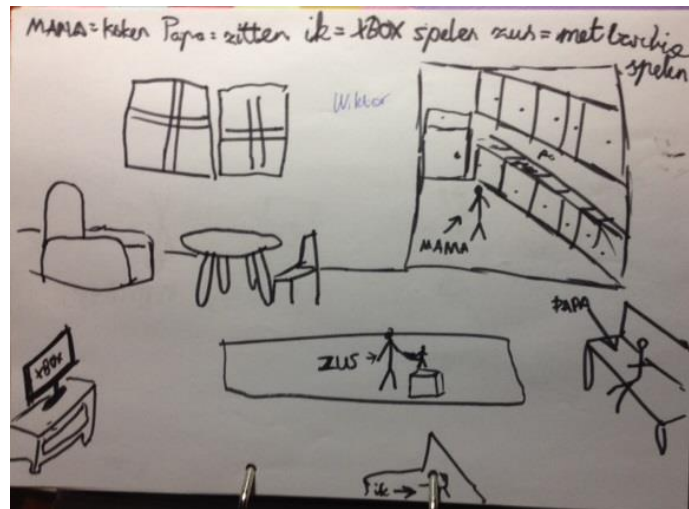 MAMA = koken Papa = zitten ik = XBOX spelen zus = met barbie
spelen
Wiktor
MAMA
PAPA
XBOX
ZUS
ik